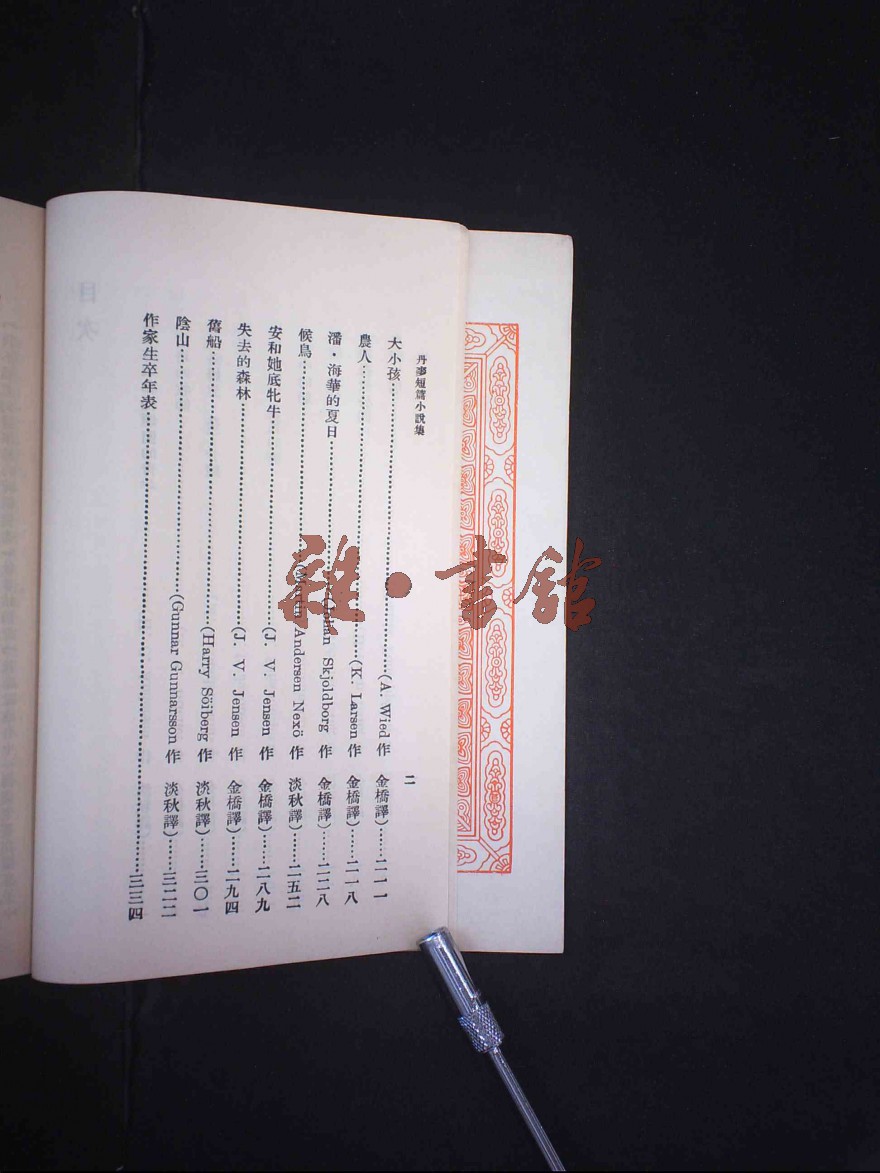 丹麥短篇小說集 二
大小孩……(A. Wied 作 金橋譯)……二一一
農人……(K. Larsen 作 金橋譯)……二一八
潘・海華的夏日……(Johan Skjoldborg 作 金橋譯)……二二八
候鳥……(Martin Andersen Nexö 作 淡秋譯)……二五二
安和她底牝牛……(J. V. Jensen 作 金橋譯)……二八九
失去的森林……(J. V. Jensen 作 金橋譯)……二九四
舊船……(Harry Söiberg 作 淡秋譯)……三〇一
陰山……(Gunnar Gunnarsson 作 淡秋譯)……三二二
作家生卒年表……三三四
雜・書館
目次